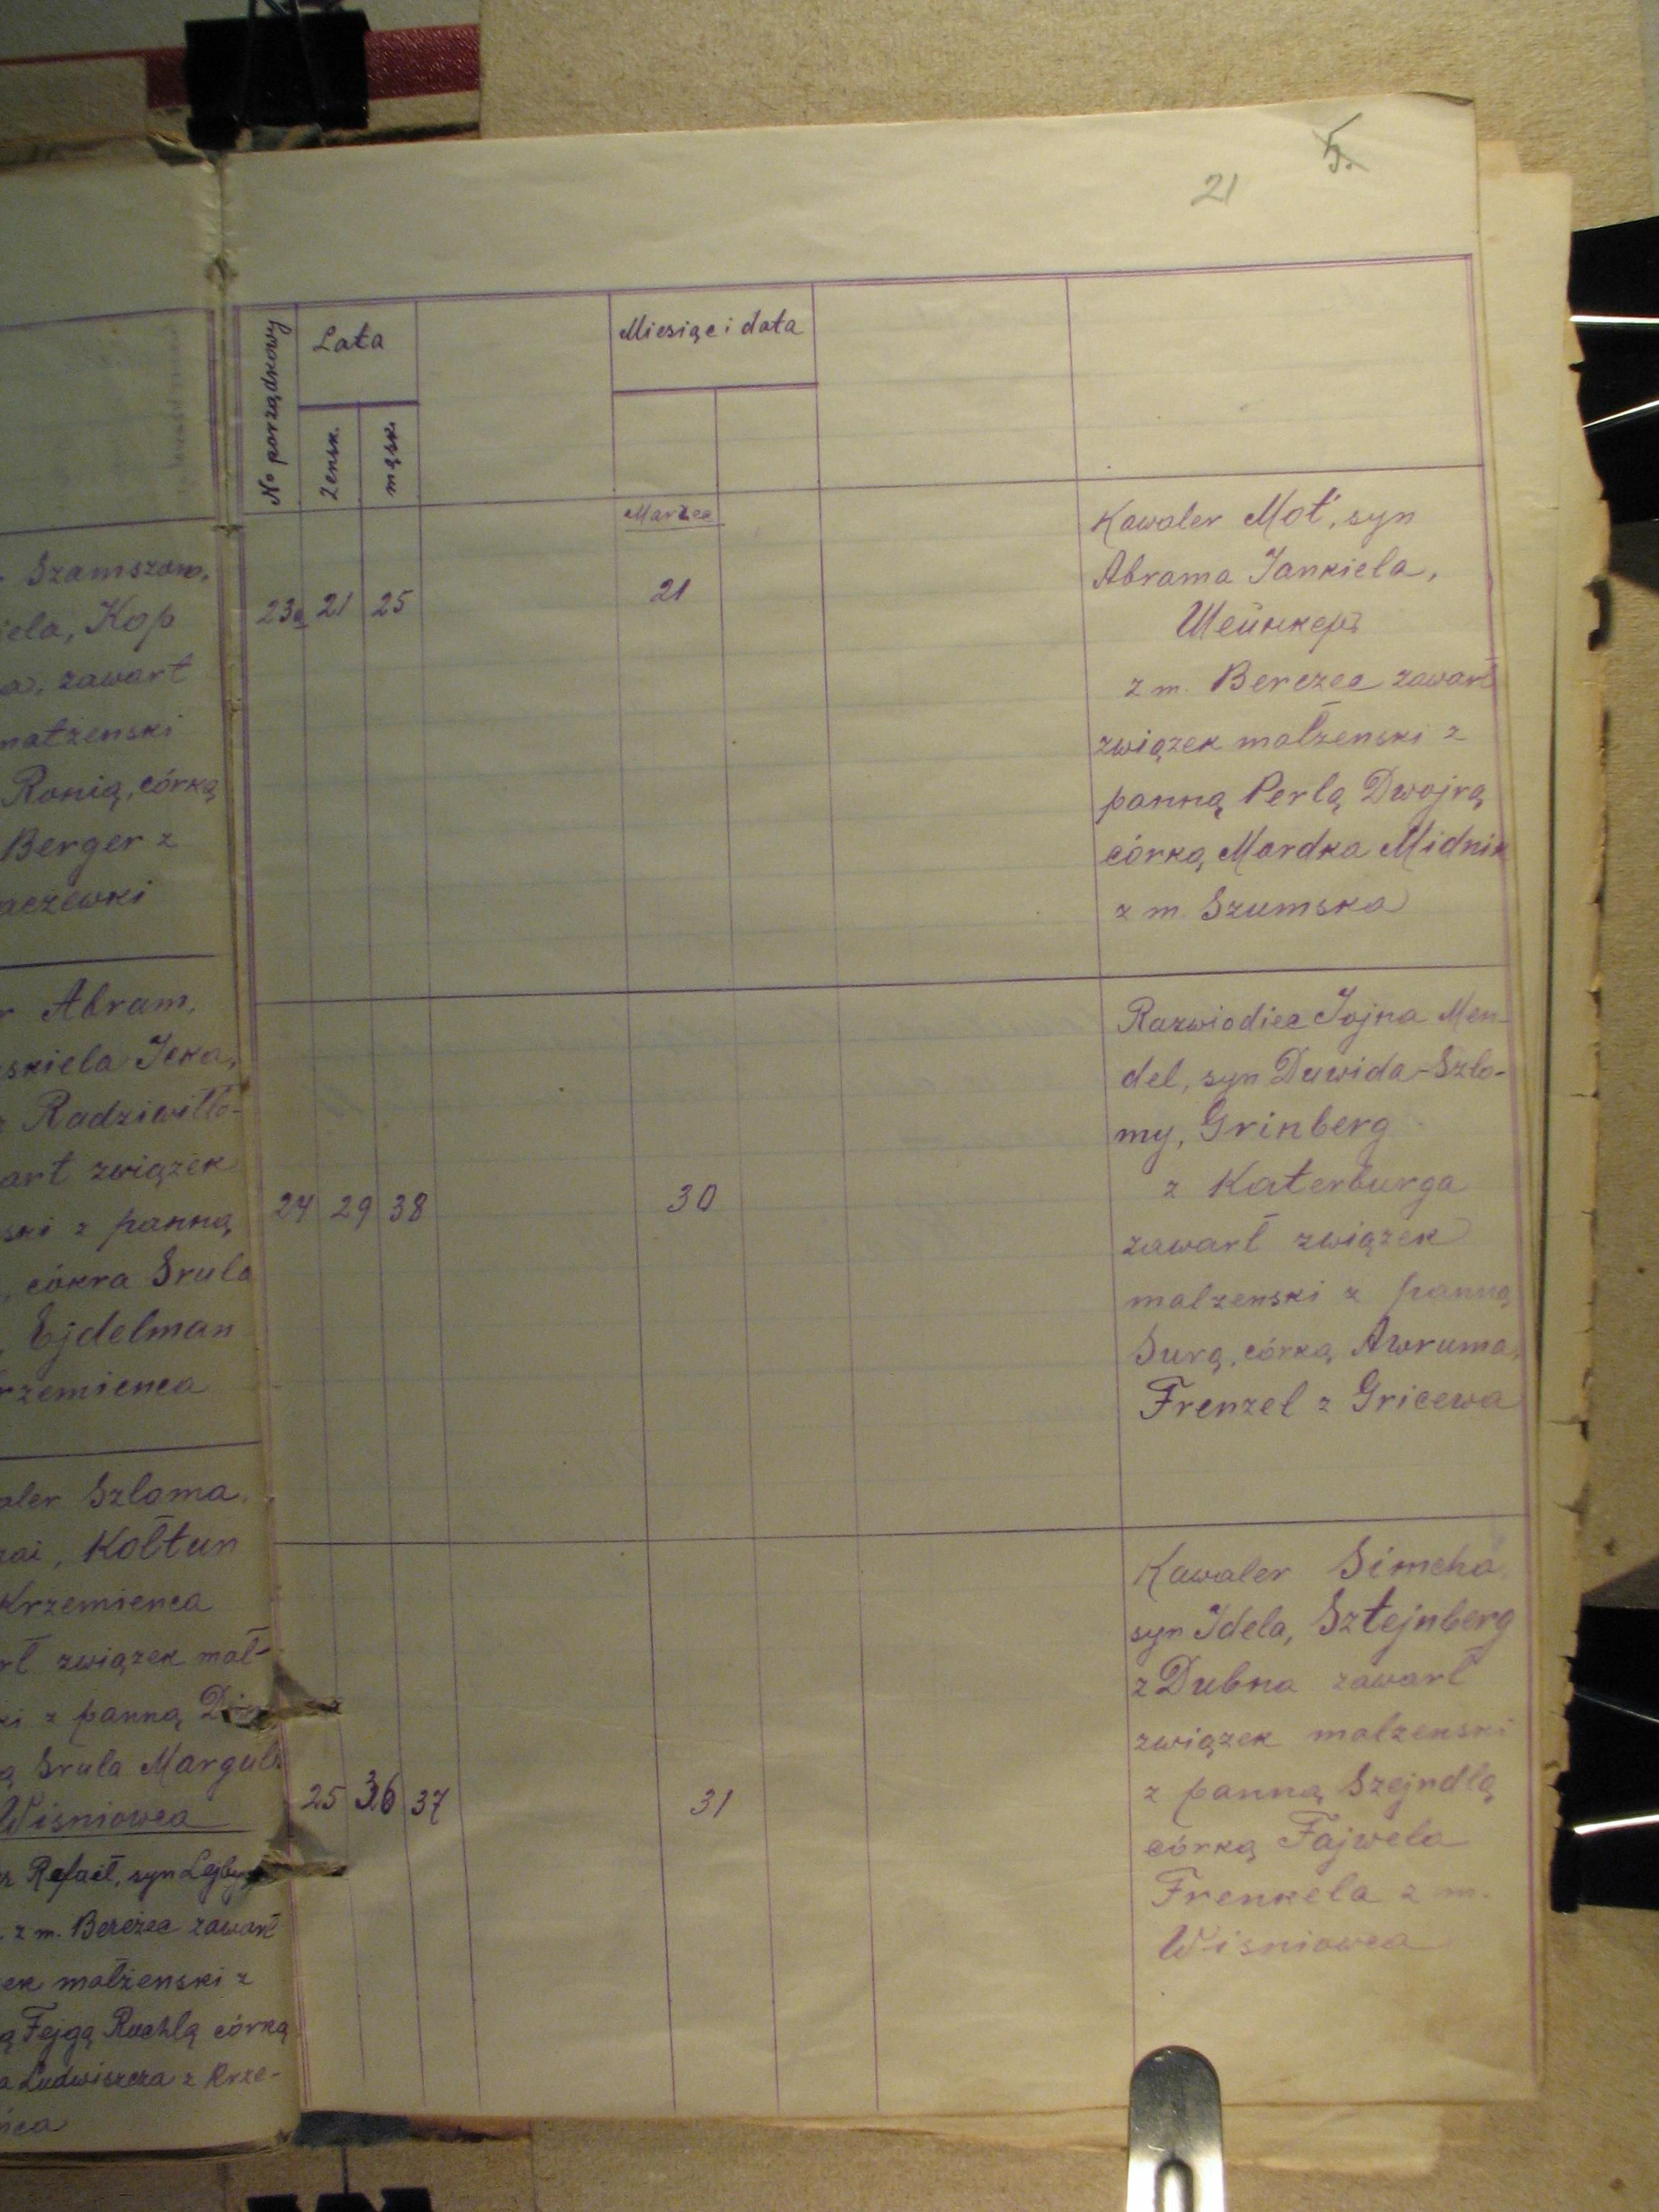 Szamszom,
iela, Kop
a, zawart
małżenski
Ronią, córką
Berger z
aczewki
Abram,
skiela Icka,
z Radziwiłło-
art związek
ski z panną
, córka Srula
Ejdelman
rzemienca
aler Szloma,
, Kołtun
Krzemienca
rł związek mał-
ki z panną
ą Srula Margul
Wisniowca
Refaeł, syn Lejby
z m. Bereżec zawarł
ek małżenski z
ą Fejgą Ruchlą córką
a Ludwiszcza z Krze-
ńca
5.
21
No porządkowy
Lata
Miesiąc i data
żensk.
męsk.
Marzec
23a 21 25
21
Kawaler Mot', syn
Abrama Jankiela,
Шейнкеръ
z m. Berezec zawarł
związek małzenski z
panną Perlą Dwojrą
córką Mordka Midnik
z m. Szumska
24 29 38
30
Rozwiodiec Jojna Men-
del, syn Duwida-Szlo-
my, Grinberg
z Katerburga
zawarł związek
malzenski z panną
Surą, córką Awruma,
Frenzel z Gricewa
25 36 37
31
Kawaler Simcha
syn Idela, Sztejnberg
z Dubna zawarł
związek malzenski
z panną Szejndlą
córką Fajwela
Frenkela z m.
Wisniowca